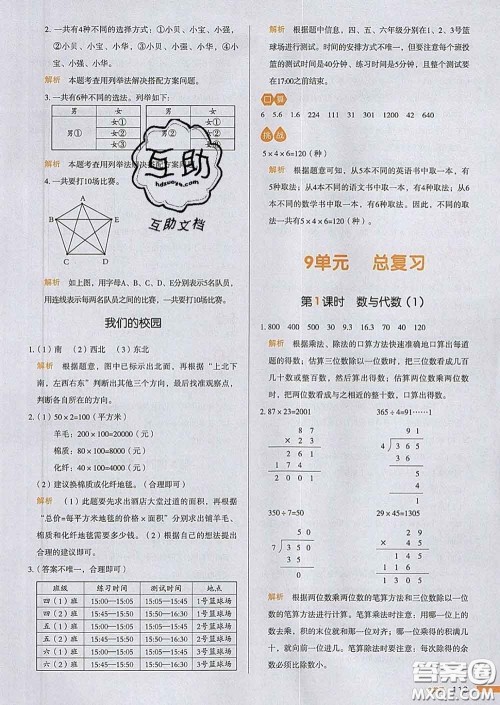 2. 一共有4种不同的选择方式：①小贝、小宝、小强，
②小贝、小宝、小华，③小贝、小强、小华，④小
宝、小强、小华。
解析 本题考查用列举法解决搭配方案问题。
3. 一共有6种不同的选法。列举如下：
男 女
男① 女① 女② 女③
男 女
男② 女① 女② 女③
解析 本题考查用列举法解决搭配方案问题。
4. 一共要打10场比赛。
A
B E
C D
解析 如上图，用字母A、B、C、D、E分别表示5名队员，
用连线表示每两名队员之间的比赛，一共要打10场比赛。
我们的校园
1.（1）南 （2）西北 （3）东北
解析 根据题意，图中已标示出北面，再根据“上北下
南，左西右东”判断出其他三个方向，最后找准观察点，
判断各自所在的方向。
2.（1）50×2=100（平方米）
羊毛：200×100=20000（元）
棉质：80×100=8000（元）
化纤：40×100=4000（元）
（2）建议换棉质或化纤地毯。（合理即可）
解析 （1）此题要先求出酒店大堂过道的面积，再根据
“总价=每平方米地毯的价格×面积”分别求出铺羊毛、
棉质和化纤地毯需要多少钱。（2）根据自己的想法提出
合理的建议即可。
3.（答案不唯一，合理即可）
班级 练习时间 测试时间 地点
四（1）班 15:00—15:05 15:05—15:45 1号篮球场
四（2）班 15:45—15:50 15:50—16:30 1号篮球场
五（1）班 15:00—15:05 15:05—15:45 2号篮球场
五（2）班 15:45—15:50 15:50—16:30 2号篮球场
六（1）班 15:00—15:05 15:05—15:45 3号篮球场
六（2）班 15:45—15:50 15:50—16:30 3号篮球场
解析 根据题中信息，四、五、六年级分别在1、2、3号篮
球场进行测试。时间的安排方式不唯一，但要注意每个班投
篮的测试时间是40分钟、练习时间是5分钟，且整个测试要
在17:00之前结束。
口算
6 5.6 1.6 224 311 31 1200 42 640
挑战
5×4×6=120（种）
解析 根据题意可知，从5本不同的英语书中取一本，有
5种取法；从4本不同的语文书中取一本，有4种取法；从6
本不同的数学书中取一本，有6种取法。因此，不同的取
法一共有5×4×6=120（种）。
9单元 总复习
第1课时 数与代数（1）
1. 800 400 500 20 90 1500
解析 根据乘法、除法的口算方法快速准确地口算出每道
题的得数；估算三位数除以一位数时，把三位数看成几百
几十数或整百数，再口算出得数；估算两位数乘两位数
时，把两位数看成与之相近的整十数，口算出得数。
2. 87×23=2001 365÷4=91……1
8 7
× 2 3
2 6 1
1 7 4
2 0 0 1
9 1
4 3 6 5
3 6
5
4
1
350÷7=50 29×45=1305
5 0
7 3 5 0
3 5
0
2 9
× 4 5
1 4 5
1 1 6
1 3 0 5
解析 根据两位数乘两位数的笔算方法和三位数除以一位
数的笔算方法进行计算。笔算乘法时，用哪一位上的数去
乘，积的末位就和那一位对齐；哪一位上的乘积满几十，
就向前一位进几。笔算除法时要注意，每次除得的余
数必须比除数小。
互助
hdzuoye.com
互助文档
答案圈
MXQE.COM